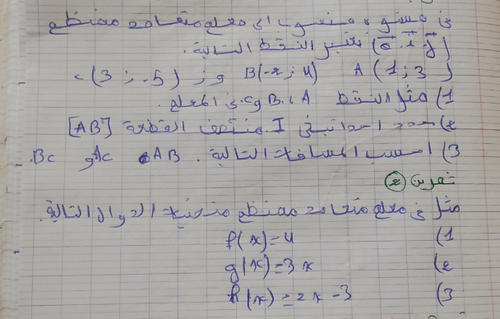 في مستوى منسوب إلى معلم متعامد ممنظم
(o, i, j) نعتبر النقط التالية.
A(1;3) B(-2;4) و C(3;-5)
1) مثل النقط A، B و C في المعلم.
2) حدد احداثيتي I منتصف القطعة [AB]
3) احسب المسافات التالية. AB، Ac و Bc.
تمرين 2
مثل في معلم متعامد ممنظم منحنيات الدوال التالية.
1) f(x)=4
2) g(x)=3x
3) h(x)=2x-3